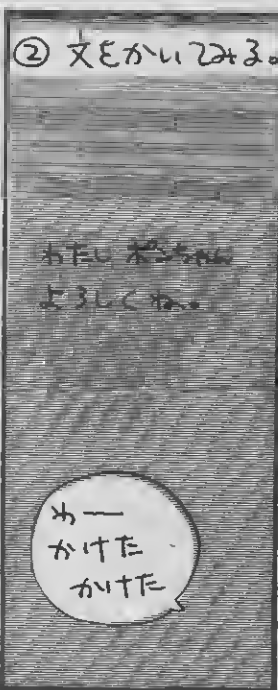 ② 文をかいてみる。
わたし ポンちゃん
よろしくね。
わー
かけた
かけた